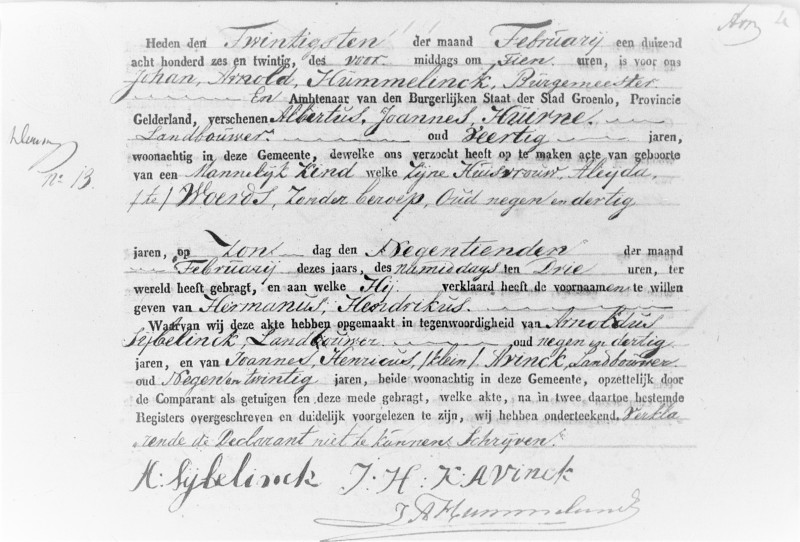 Heden den Twintigsten der maand Februarij een duizend
acht honderd zes en twintig, des voor middags om Tien uren, is voor ons
Johan, Arnold, Hummelinck, Burgemeester
En Ambtenaar van den Burgerlijken Staat der Stad Groenlo, Provincie
Gelderland, verschenen Albertus, Joannes, Hurne.
Landbouwer. oud Veertig jaren,
woonachtig in deze Gemeente, dewelke ons verzocht heeft op te maken acte van geboorte
van een Mannelijk Kind welke Zijne Huisvrouw, Aleijda,
/te/ Woerds, Zonder beroep, Oud negen en dertig
jaren, op Zon dag den Negentienden der maand
Februarij dezes jaars, des namiddags ten Drie uren, ter
wereld heeft gebragt, en aan welke Hij verklaard heeft de voornamen te willen
geven van Hermanus, Hendrikus.
Waarvan wij deze akte hebben opgemaakt in tegenwoordigheid van Arnoldus
Sijbelinck, Landbouwer oud negen en dertig
jaren, en van Joannes, Henricus, /klein/ Avinck, Landbouwer
oud Negen en twintig jaren, beide woonachtig in deze Gemeente, opzettelijk door
de Comparant als getuigen ten deze mede gebragt, welke akte, na in twee daartoe bestemde
Registers overgeschreven en duidelijk voorgelezen te zijn, wij hebben onderteekend. Verkla
rende de Declarant niet te kunnen Schrijven.
No. 13.
A: Sijbelinck J: H: K: Avinck
J A Hummelinck